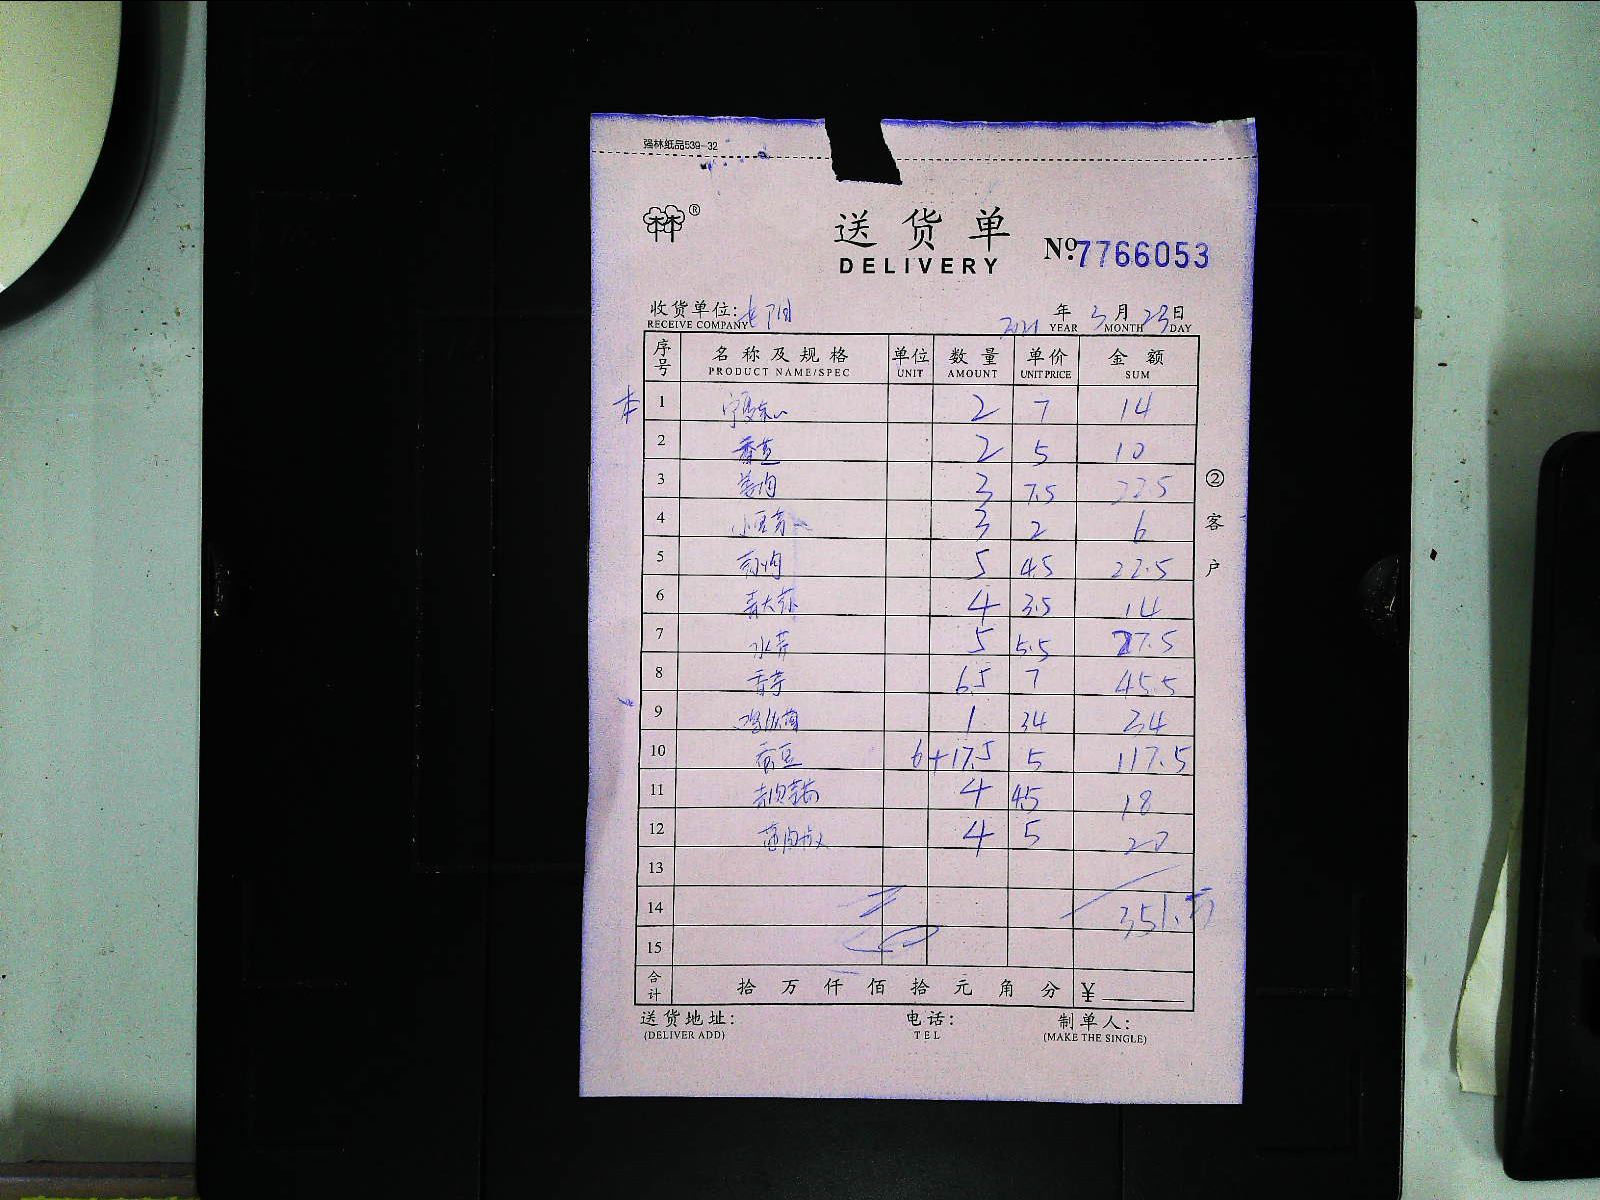 强林纸品539-32
林林®
送货单
№7766053
DELIVERY
收货单位:
RECEIVE COMPANY
2021 年 YEAR 3 月 MONTH 23 日 DAY
序号 名称及规格 单位 数量 单价 金额
PRODUCT NAME/SPEC UNIT AMOUNT UNIT PRICE SUM
本 1 宁夏菜心 2 7 14
2 2 5 10
3 姜肉 3 7.5 22.5
4 小豆芽 3 2 6
5 5 4.5 22.5
6 4 3.5 14
7 水芹 5 5.5 27.5
8 香芋 6.5 7 45.5
9 1 34 34
10 蚕豆 6+17.5 5 117.5
11 4 4.5 18
12 4 5 20
13
14 351.5
15
合计 拾 万 仟 佰 拾 元 角 分 ¥
②客户
送货地址: 电话: 制单人:
(DELIVER ADD) TEL (MAKE THE SINGLE)